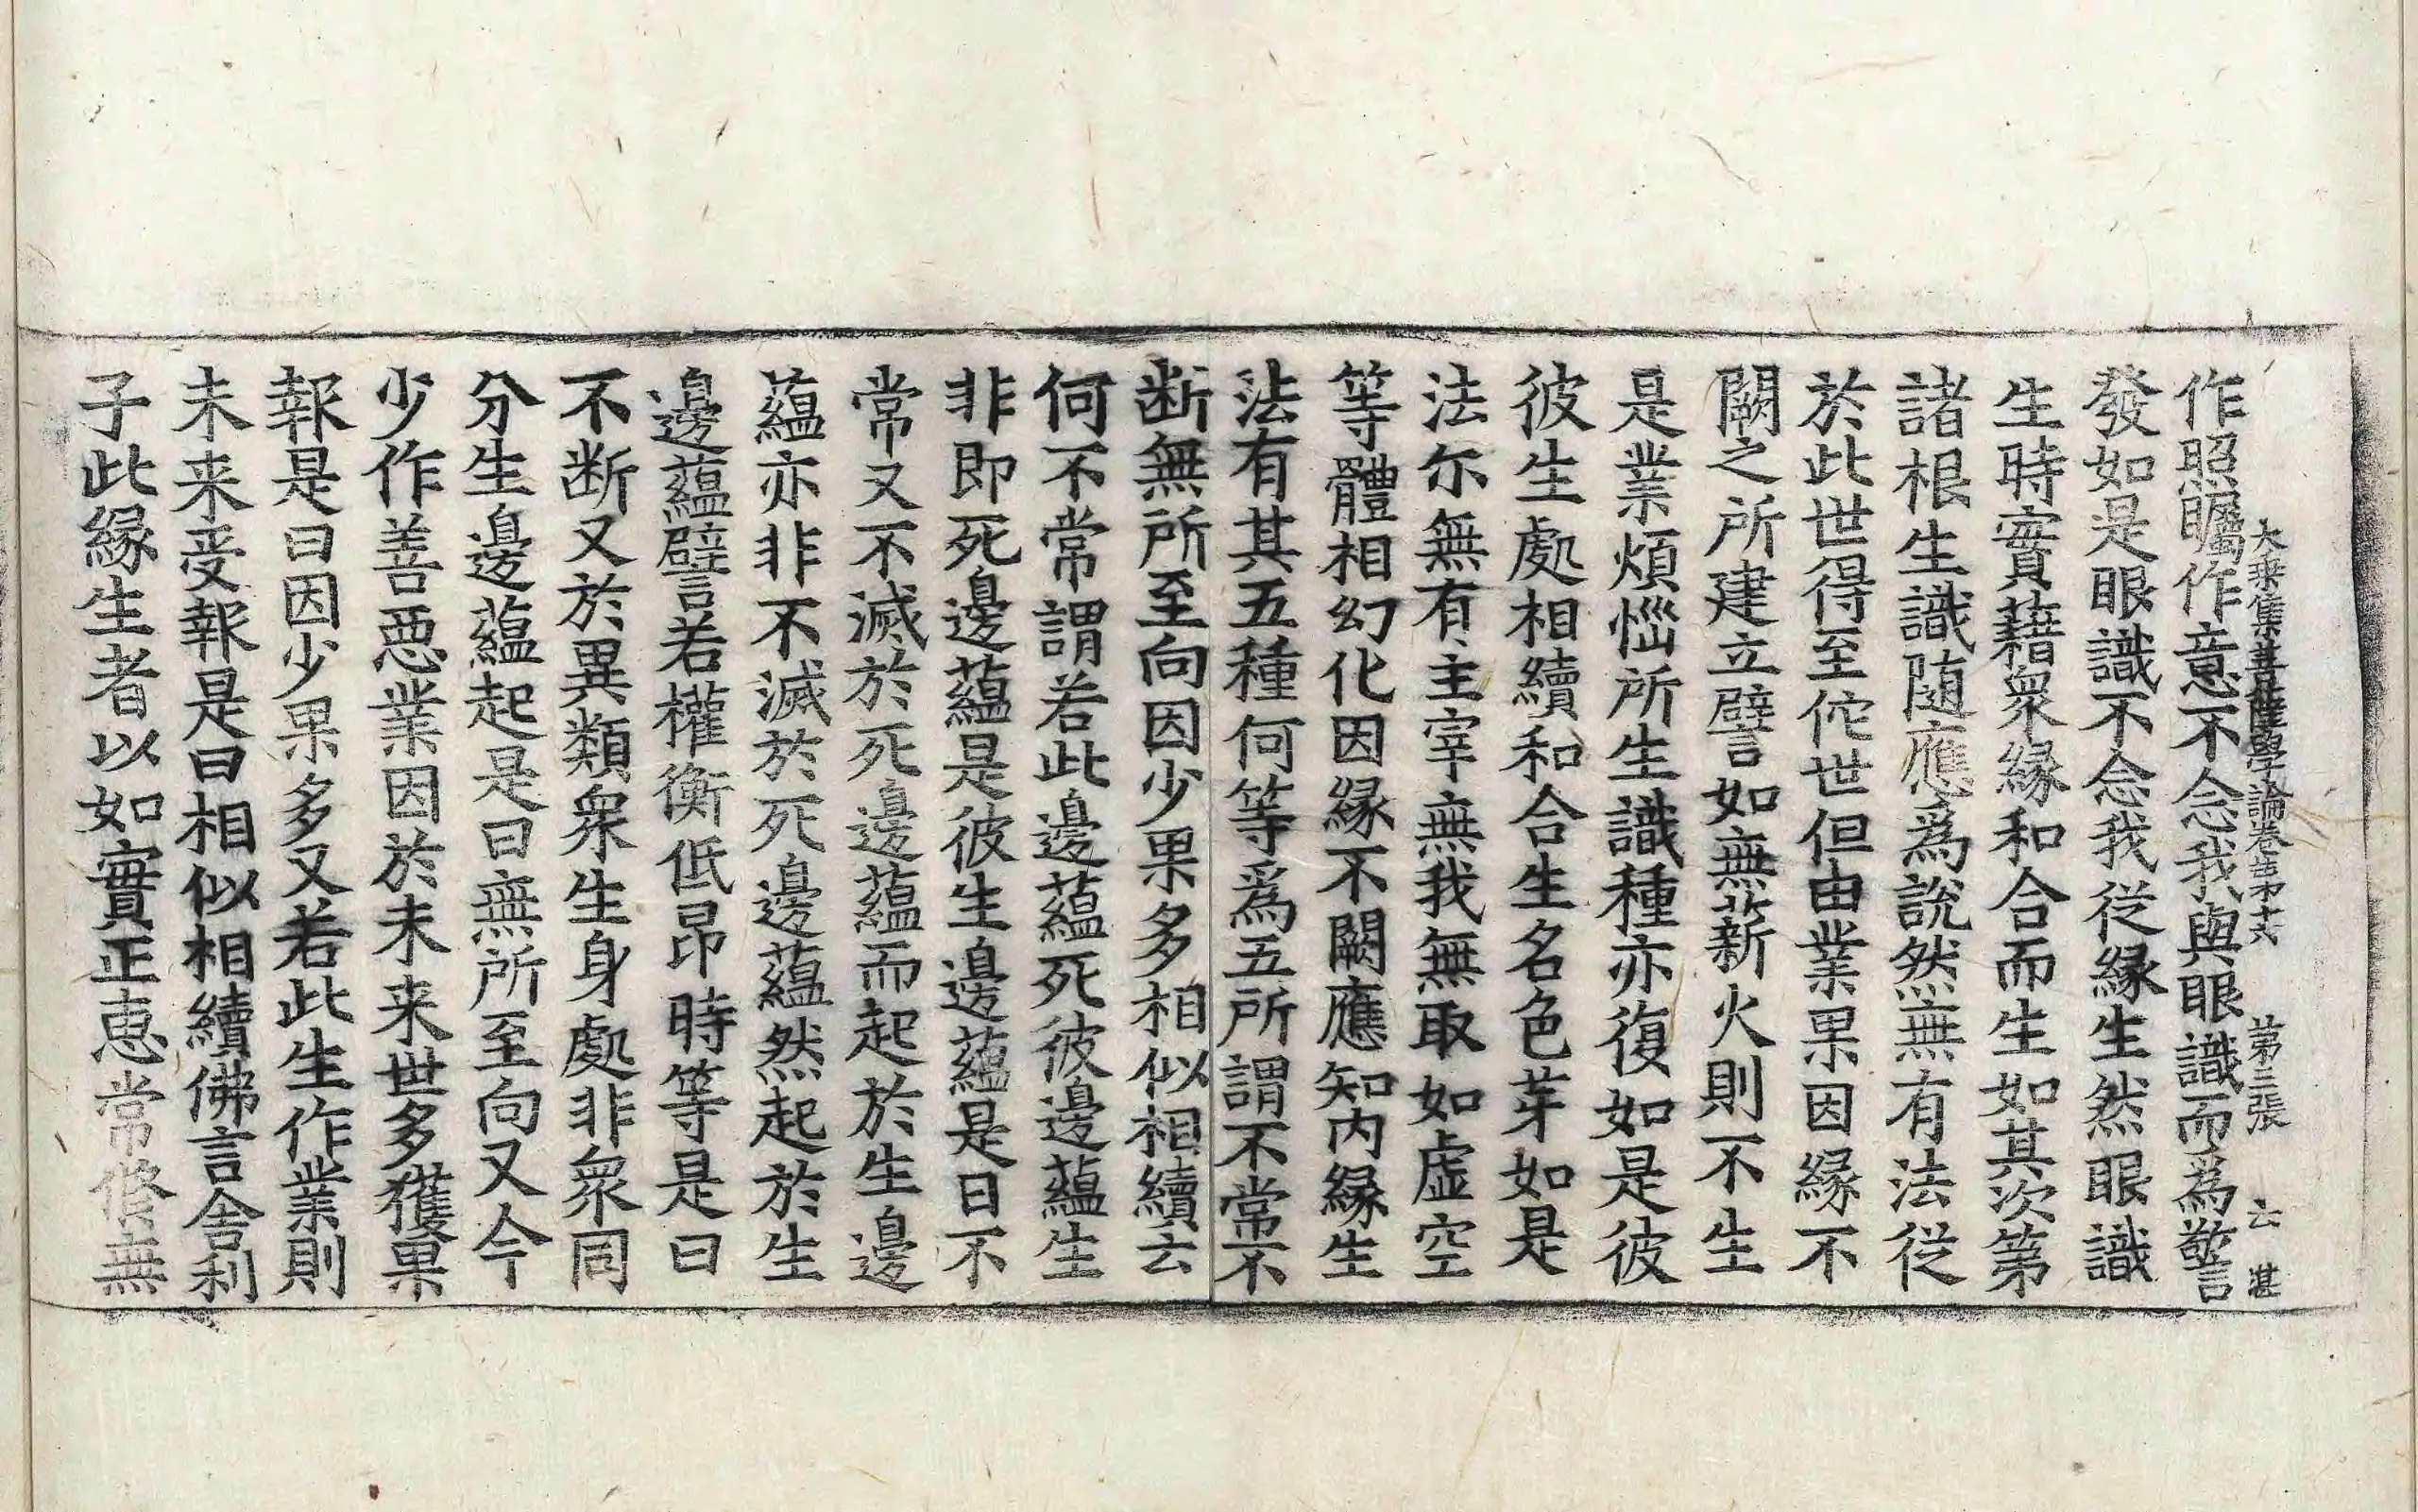 大乘集菩薩學論卷第十六　第三張　云　甚
作照矚作意不念我與眼識而爲警
發如是眼識不念我從緣生然眼識
生時實藉衆緣和合而生如其次第
諸根生識随應爲說然無有法從
於此世得至佗世但由業果因緣不
闕之所建立譬如無薪火則不生
是業煩惱所生識種亦復如是彼
彼生處相續和合生名色芽如是
法尒無有主宰無我無取如虛空
等體相幻化因緣不闕應知內緣生
法有其五種何等爲五所謂不常不
断無所至向因少果多相似相續云
何不常謂若此邊蘊死彼邊蘊生
非即死邊蘊是彼生邊蘊是曰不
常又不滅於死邊蘊而起於生邊
蘊亦非不滅於死邊蘊然起於生
邊蘊譬若權衡低昂時等是曰
不断又於異類衆生身處非衆同
分生邊蘊起是曰無所至向又今
少作善惡業因於未来世多獲果
報是曰因少果多又若此生作業則
未来受報是曰相似相續佛言舍利
子此緣生者以如實正恵常修無